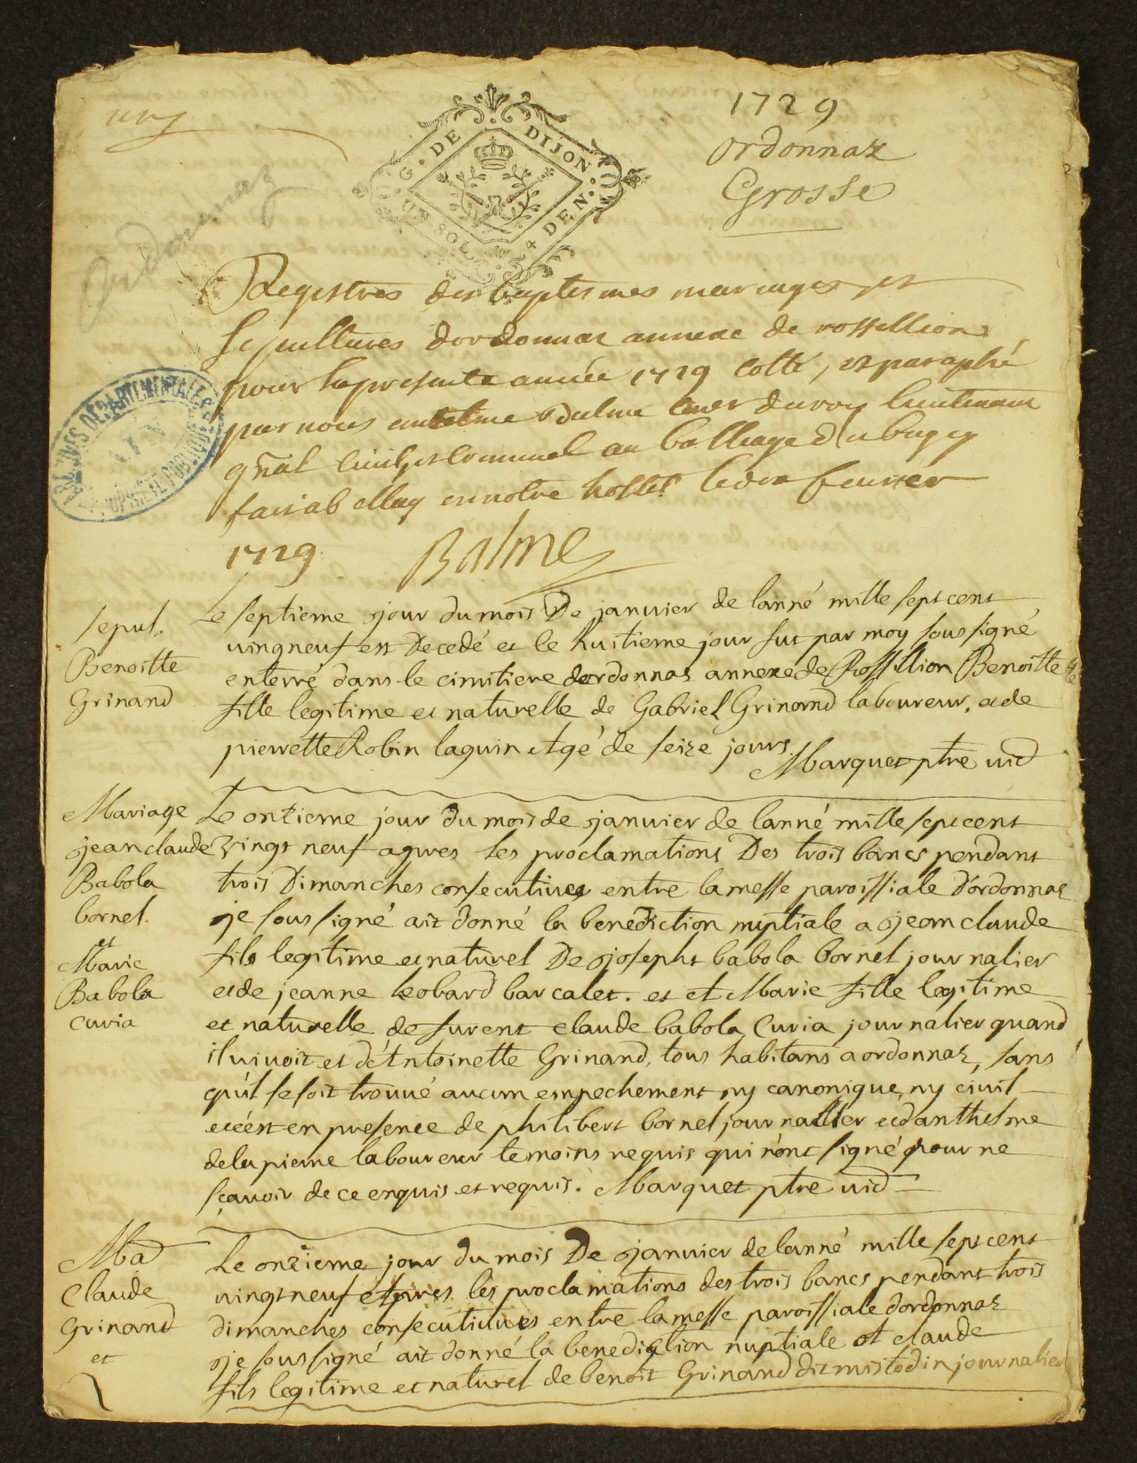 1729
ordonnaz
Grosse
G. DE DIJON
UN SOL 4 DEN.
ARCHIVES DÉPARTEMENTALES
AIN
Registres des baptesmes mariages et
sepultures dordonnaz annexe de rossillion
pour la presente année 1729 cotté, et paraphé
par nous antelme Balme du roy lieutenant
gñal civil et criminel au balliage du bugey
fait a belley en notre hostel fevrier
1729 Balme
sepul.
Benoitte
Grinand
Le septieme jour du mois De janvier de lanné mille sept cent
vingneuf est Decedé et le huitieme jour fut par moy soussigné
enterré dans le cimitiere dordonnas annexe de Rossillion Benoitte
fille legitime et naturelle de Gabriel Grinand laboureur, et de
pierrette Robin laguin Agé de seize jours. Marquet ptre vic
Mariage
jean claude
Babola
bornel.
et
Marie
Babola
curia
Le onzieme jour du mois de janvier de lanné mille sept cent
vingt neuf apres les proclamations Des trois bancs pendant
trois Dimanches consecutives entre la messe paroissiale d'ordonnaz
je sous signé ait donné la benediction nuptiale a jean claude
fils legitime et naturel De josepht babola bornel journalier
et de jeanne leobard barcalet. et et Marie fille legitime
et naturelle de furent claude babola Curia journalier quand
il vivoit et de Antoinette Grinand, tous habitans a ordonnaz, sans
qu'il se soit trouvé aucun empechement ny canonique, ny civil
et c'est en presence de philibert bornel journallier et danthelme
delapierre laboureur temoins requis qui n'ont signé pour ne
sçavoir de ce enquis et requis. Marquet ptre vic
Mad
Claude
Grinand
et
Le onzieme jour du mois De janvier de lanné mille sept cent
vingt neuf Apres les proclamations des trois bancs pendant trois
dimanches consecutives entre la messe paroissiale dordonnaz
je soussigné ait donné la benediction nuptiale a claude
fils legitime et naturel de benoit Grinand dit mistodin journalier